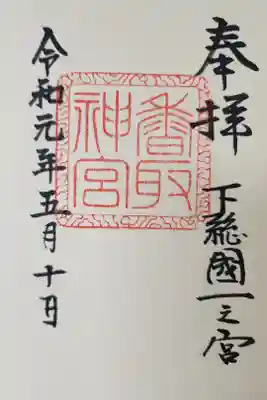 奉拝
下総國一之宮
香取神宮
令和元年五月十日